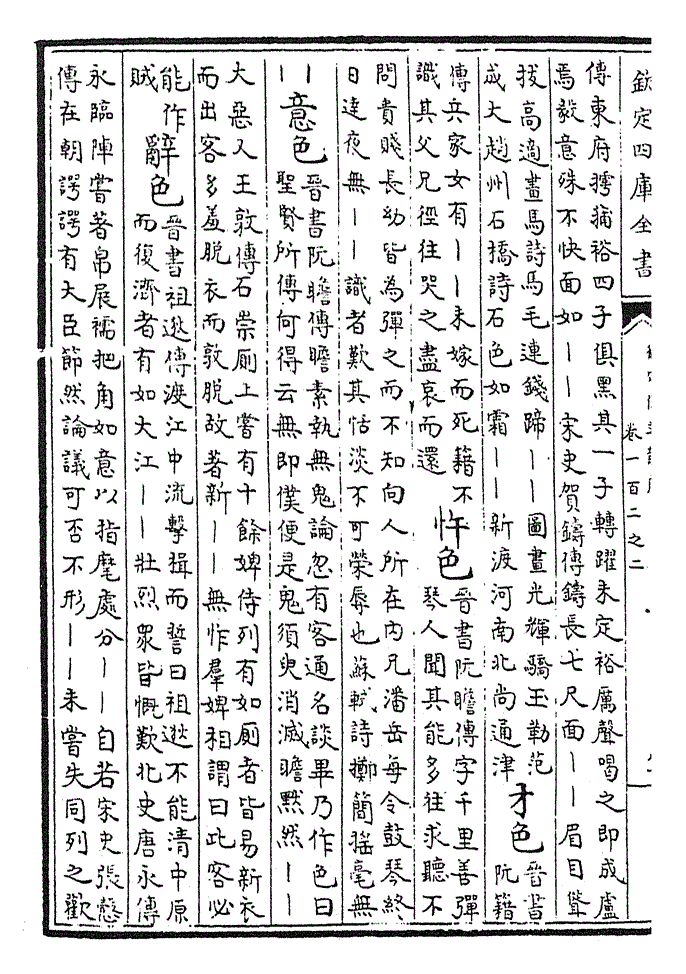 欽定四庫全書
卷一百二之二
傳東府摴蒱裕四子俱黑其一子轉躍未定裕厲聲喝之即成盧
焉毅意殊不快面如丨丨宋史賀鑄傳鑄長七尺面丨丨眉目聳
拔高適畫馬詩馬毛連錢蹄丨丨圖畫光輝驕玉勒范
成大趙州石橋詩石色如霜丨丨新渡河南北尚通津
才色
晉書
阮籍
傳兵家女有丨丨未嫁而死籍不
識其父兄徑往哭之盡哀而還
忤色
晉書阮瞻傳字千里善彈
琴人聞其能多往求聽不
問貴賤長幼皆為彈之而不知向人所在内兄潘岳每令鼓琴終
日達夜無丨丨識者歎其恬淡不可榮辱也蘇軾詩擲簡搖毫無
丨
丨
意色
晉書阮瞻傳瞻素執無鬼論忽有客通名談畢乃作色曰
聖賢所傳何得云無即僕便是鬼須臾消滅瞻黙然丨丨
大惡又王敦傳石崇厠上嘗有十餘婢侍列有如厠者皆易新衣
而出客多羞脫衣而敦脫故著新丨丨無怍羣婢相謂曰此客必
能作
賊
辭色
晉書祖逖傳渡江中流擊楫而誓曰祖逖不能清中原
而復濟者有如大江丨丨壯烈眾皆慨歎北史唐永傳
永臨陣嘗著帛展襦把角如意以指麾處分丨丨自若宋史張慤
傳在朝諤諤有大臣節然論議可否不形丨丨未嘗失同列之歡